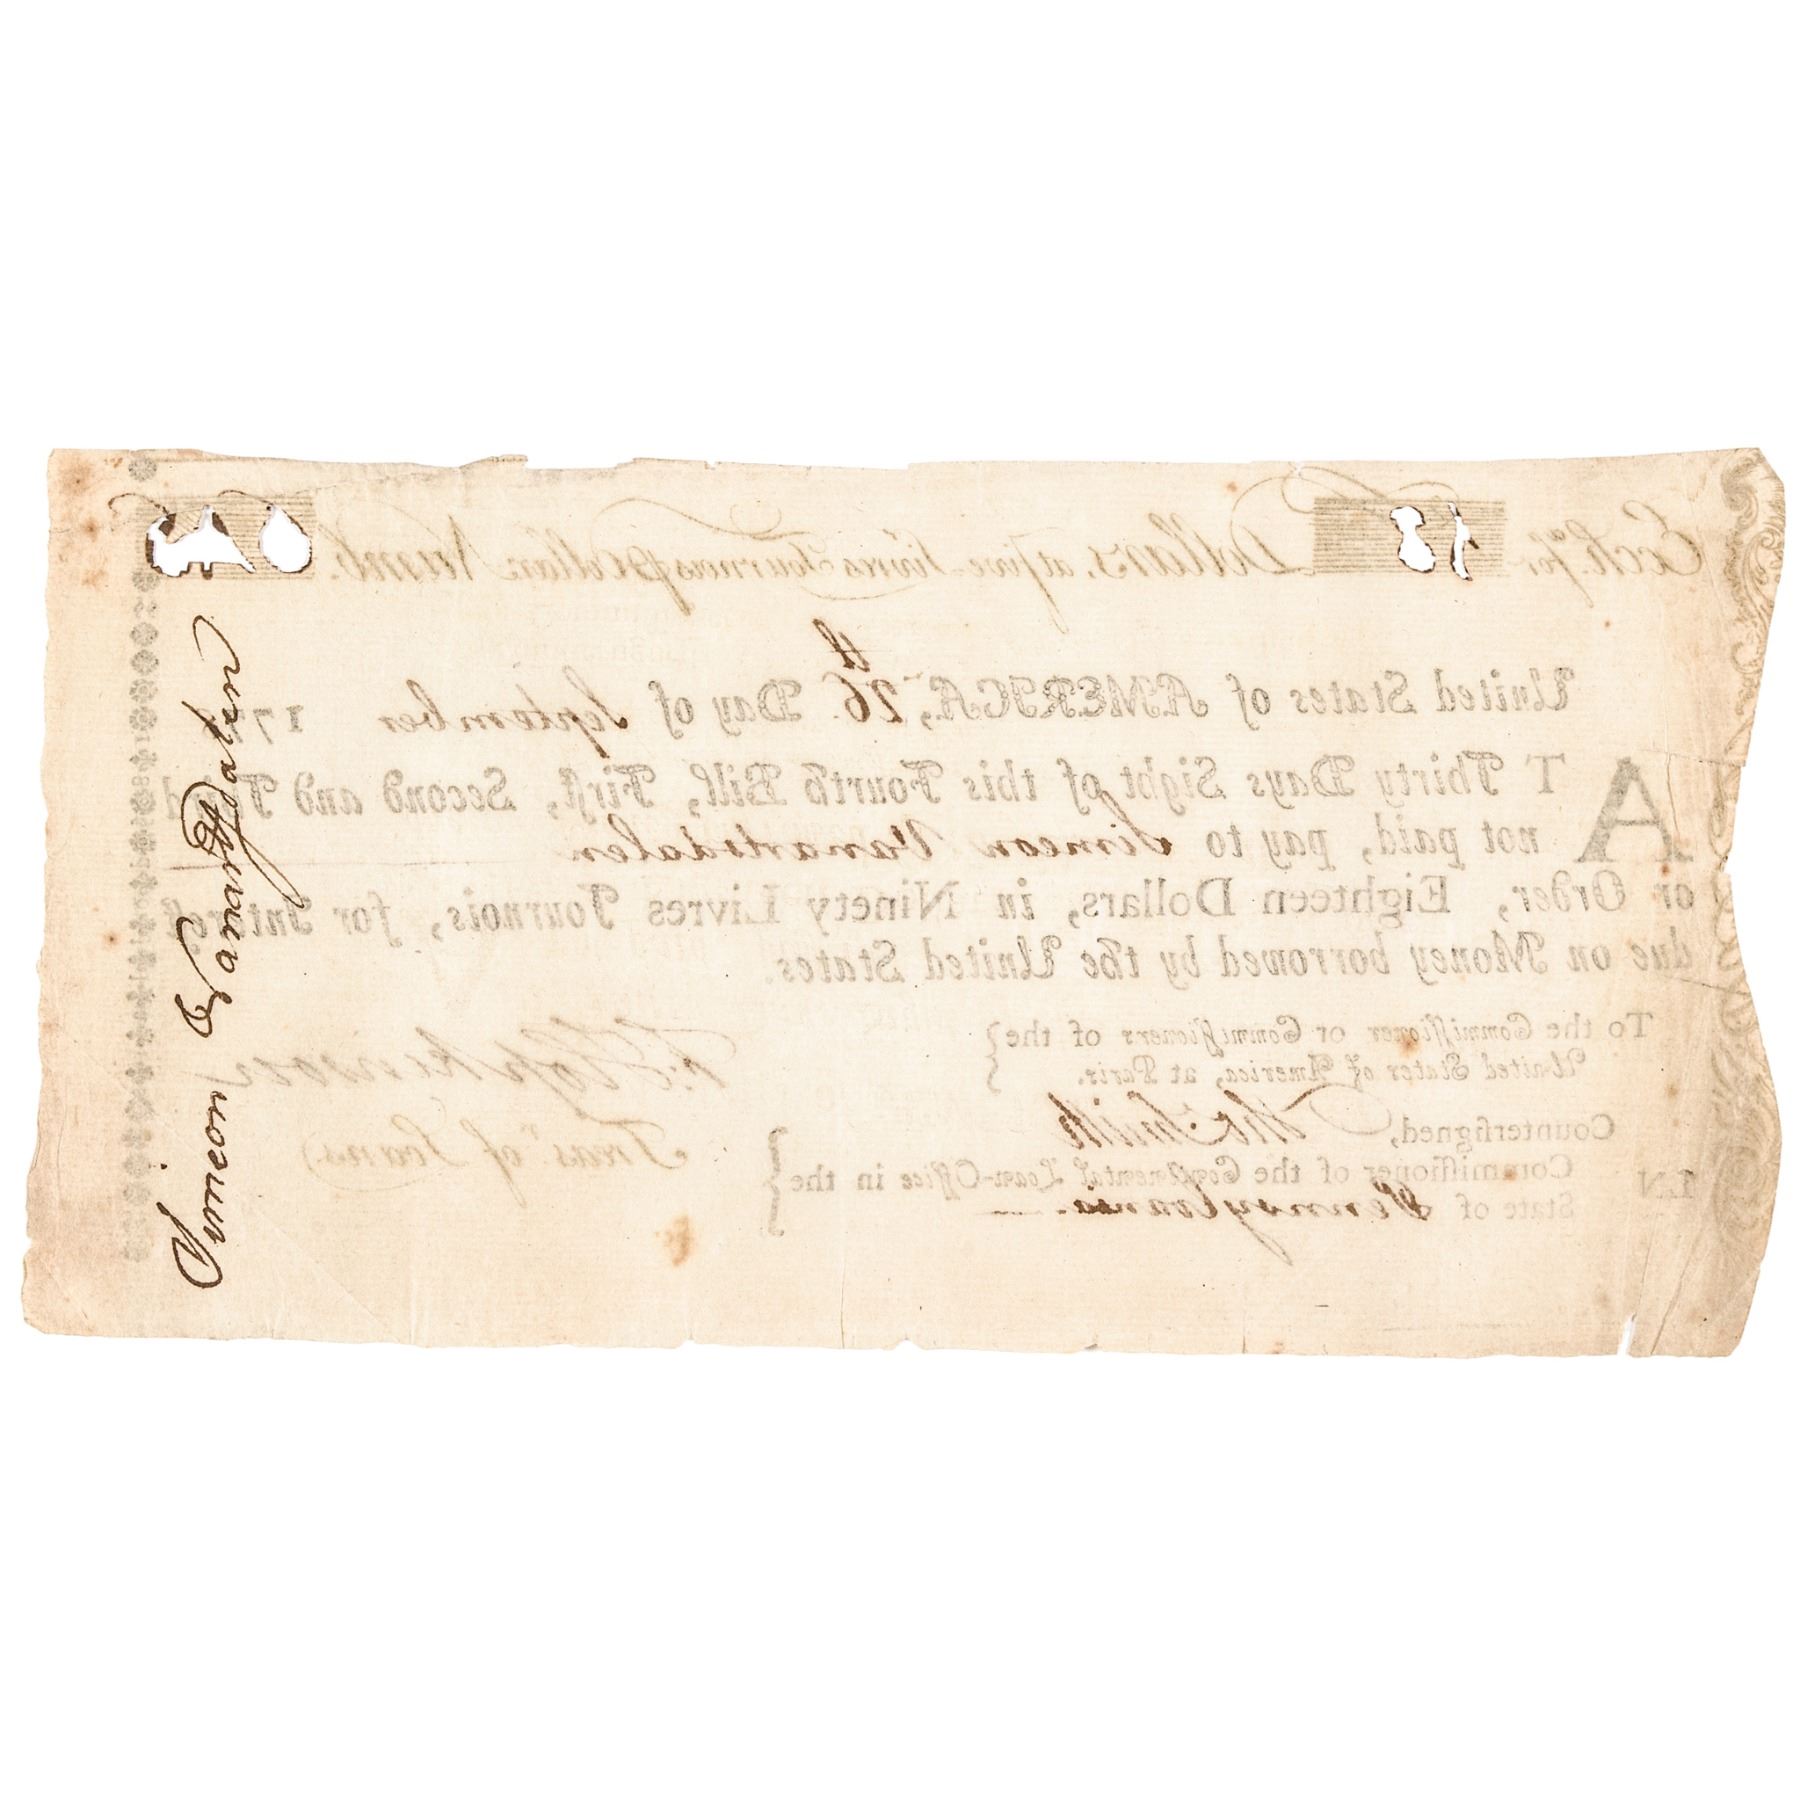 Exch.ᵃ for 18 Dollars, at five Livres Tournois ⅌ Dollar. Numb.
United States of AMERICA, 26.th Day of September 177
AT Thirty Days Sight of this Fourth Bill, First, Second and Third
not paid, pay to Simeon Vanartsdalen
or Order, Eighteen Dollars, in Ninety Livres Tournois, for Interest
due on Money borrowed by the United States.
To the Commissioner or Commissioners of the
United States of America, at Paris.
F. Hopkinson
Treasr. of Loans.
Countersigned, Tho Smith
Commissioner of the Continental Loan-Office in the
State of Pennsylvania.
Simeon